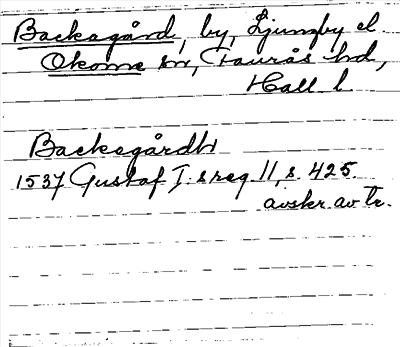 Backagård, by, Ljungby el.
Okome sn, Faurås hd,
Hall. l.
Backegårdh
1537 Gustaf I:s reg. 11, s. 425.
avskr. av tr.